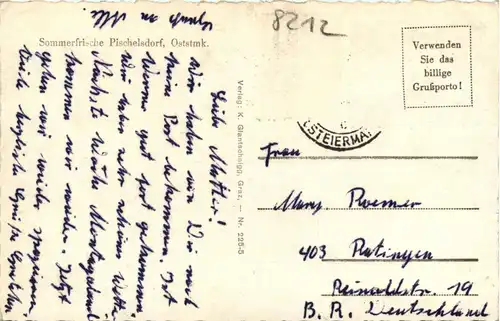 8212
Sommerfrische Pischelsdorf, Oststmk.
Liebe Mutter!
Wir haben von Dir noch
keine Post bekommen. Ist
Werner gut
Wir haben sehr schönes Wetter
Nächste Woche Montagabend
kommen wir wieder. Jetzt
gehen wir wieder spazieren.
Viele herzliche Grüße
Verlag: K. Glantschnigg, Graz, — Nr. 225-5
Verwenden
Sie das
billige
Grußporto!
STEIERMA
Frau
Mary Roemer
403 Ratingen
Reinaldstr. 19
B. R. Deutschland